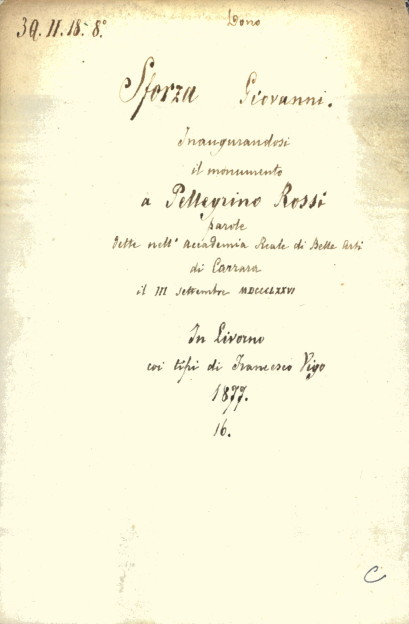 Dono
3Q. II. 18. 8°
Sforza Giovanni.
Inaugurandosi
il monumento
a Pellegrino Rossi
parole
dette nell' Accademia Reale di Belle Arti
di Carrara
il III settembre MDCCCLXXVI
In Livorno
coi tipi di Francesco Vigo
1877.
16.
C